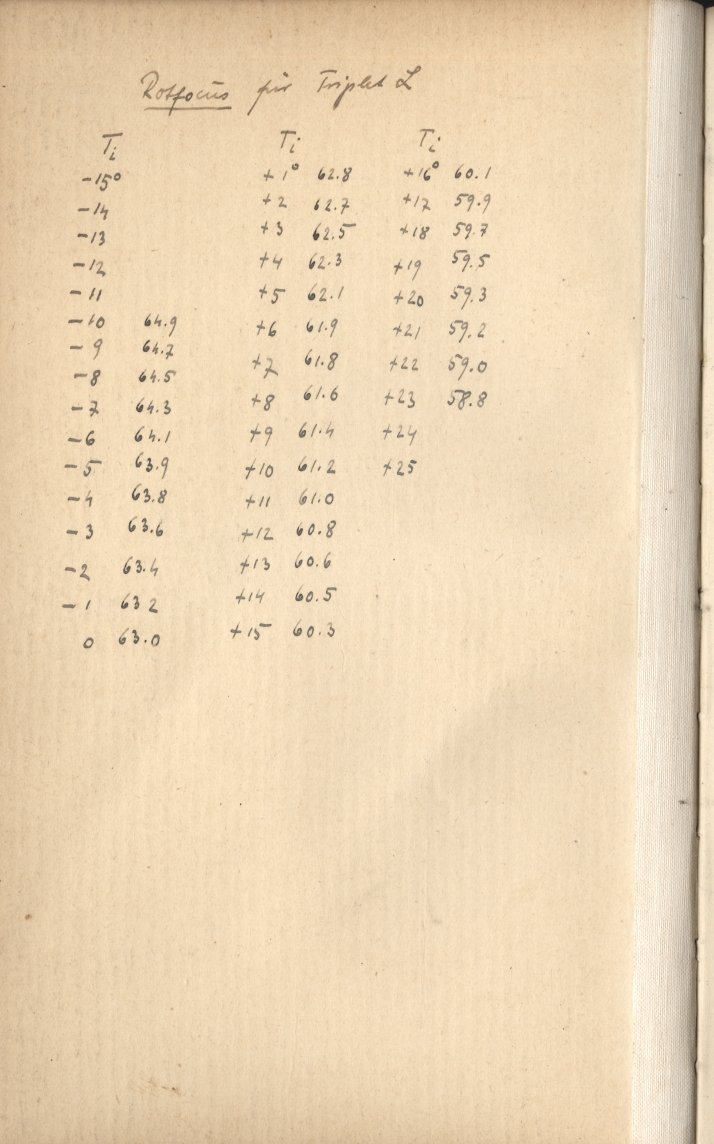 Rotfocus für Triplet L
Ti Ti Ti
-15° +1° 62.8 +16° 60.1
-14 +2 62.7 +17 59.9
-13 +3 62.5 +18 59.7
-12 +4 62.3 +19 59.5
-11 +5 62.1 +20 59.3
-10 64.9 +6 61.9 +21 59.2
-9 64.7 +7 61.8 +22 59.0
-8 64.5 +8 61.6 +23 58.8
-7 64.3 +9 61.4 +24
-6 64.1 +10 61.2 +25
-5 63.9 +11 61.0
-4 63.8 +12 60.8
-3 63.6 +13 60.6
-2 63.4 +14 60.5
-1 63 2 +15 60.3
0 63.0